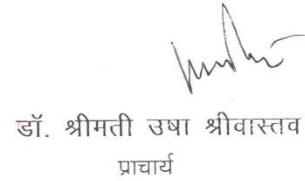 डॉ. श्रीमती उषा श्रीवास्तव
प्राचार्य